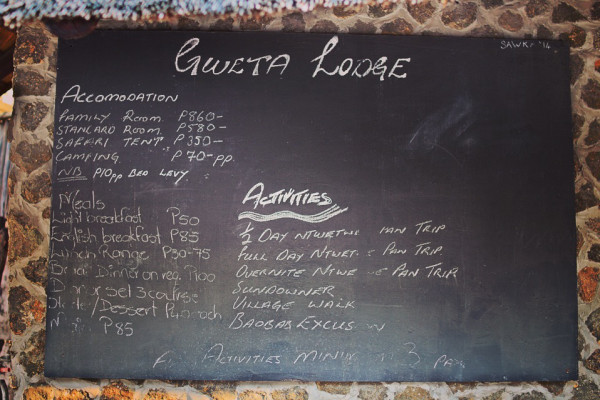 GWETA LODGE
SAWKA '14
ACCOMODATION
FAMILY ROOM P860-
STANDARD ROOM P580-
SAFARI TENT P350-
CAMPING P70-PP
NB P10pp BED LEVY
Meals
Light breakfast P50
English breakfast P85
Lunch Range P30-75
Dinner on req. P100
Dinner set 3 course
/Dessert each
P85
ACTIVITIES
1/2 DAY NTWETWE PAN TRIP
FULL DAY NTWETWE PAN TRIP
OVERNITE NTWETWE PAN TRIP
SUNDOWNER
VILLAGE WALK
BAOBAB EXCUSION
ACTIVITIES MINIMUM 3 PAX